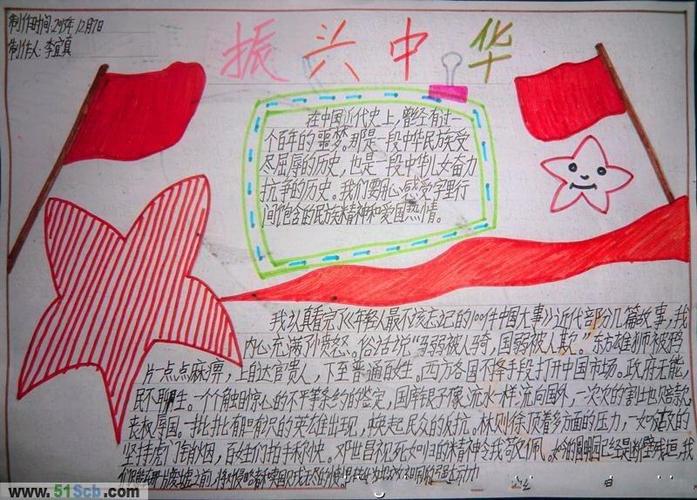 制作时间:2015年12月7日
制作人:李宜真
振兴中华
在中国近代史上,曾经有过一
个百年的噩梦。那是一段中华民族受
尽屈辱的历史,也是一段中华儿女奋力
抗争的历史。我们要用心感受字里行
间饱含的民族精神和爱国热情。
我认真看完了《年轻人最不该忘记的100件中国大事》近代部分几篇故事,我
内心充满了愤怒。俗话说“马弱被人骑,国弱被人欺。”东方雄狮被鸦
片点点麻痹,上自达官贵人,下至普通民生。西方各国不择手段打开中国市场。政府无能,
民不聊生。一个个触目惊心的不平等条约的签定,国库银子像流水一样流向国外,一次次的割土也赔款
丧权辱国。一批批有胆有识的英雄出现,唤起民众的反抗。林则徐顶着多方面的压力,一如既往的
坚持虎门销烟,百姓们拍手称快。邓世昌视死如归的精神令我敬佩。
www.51Scb.com